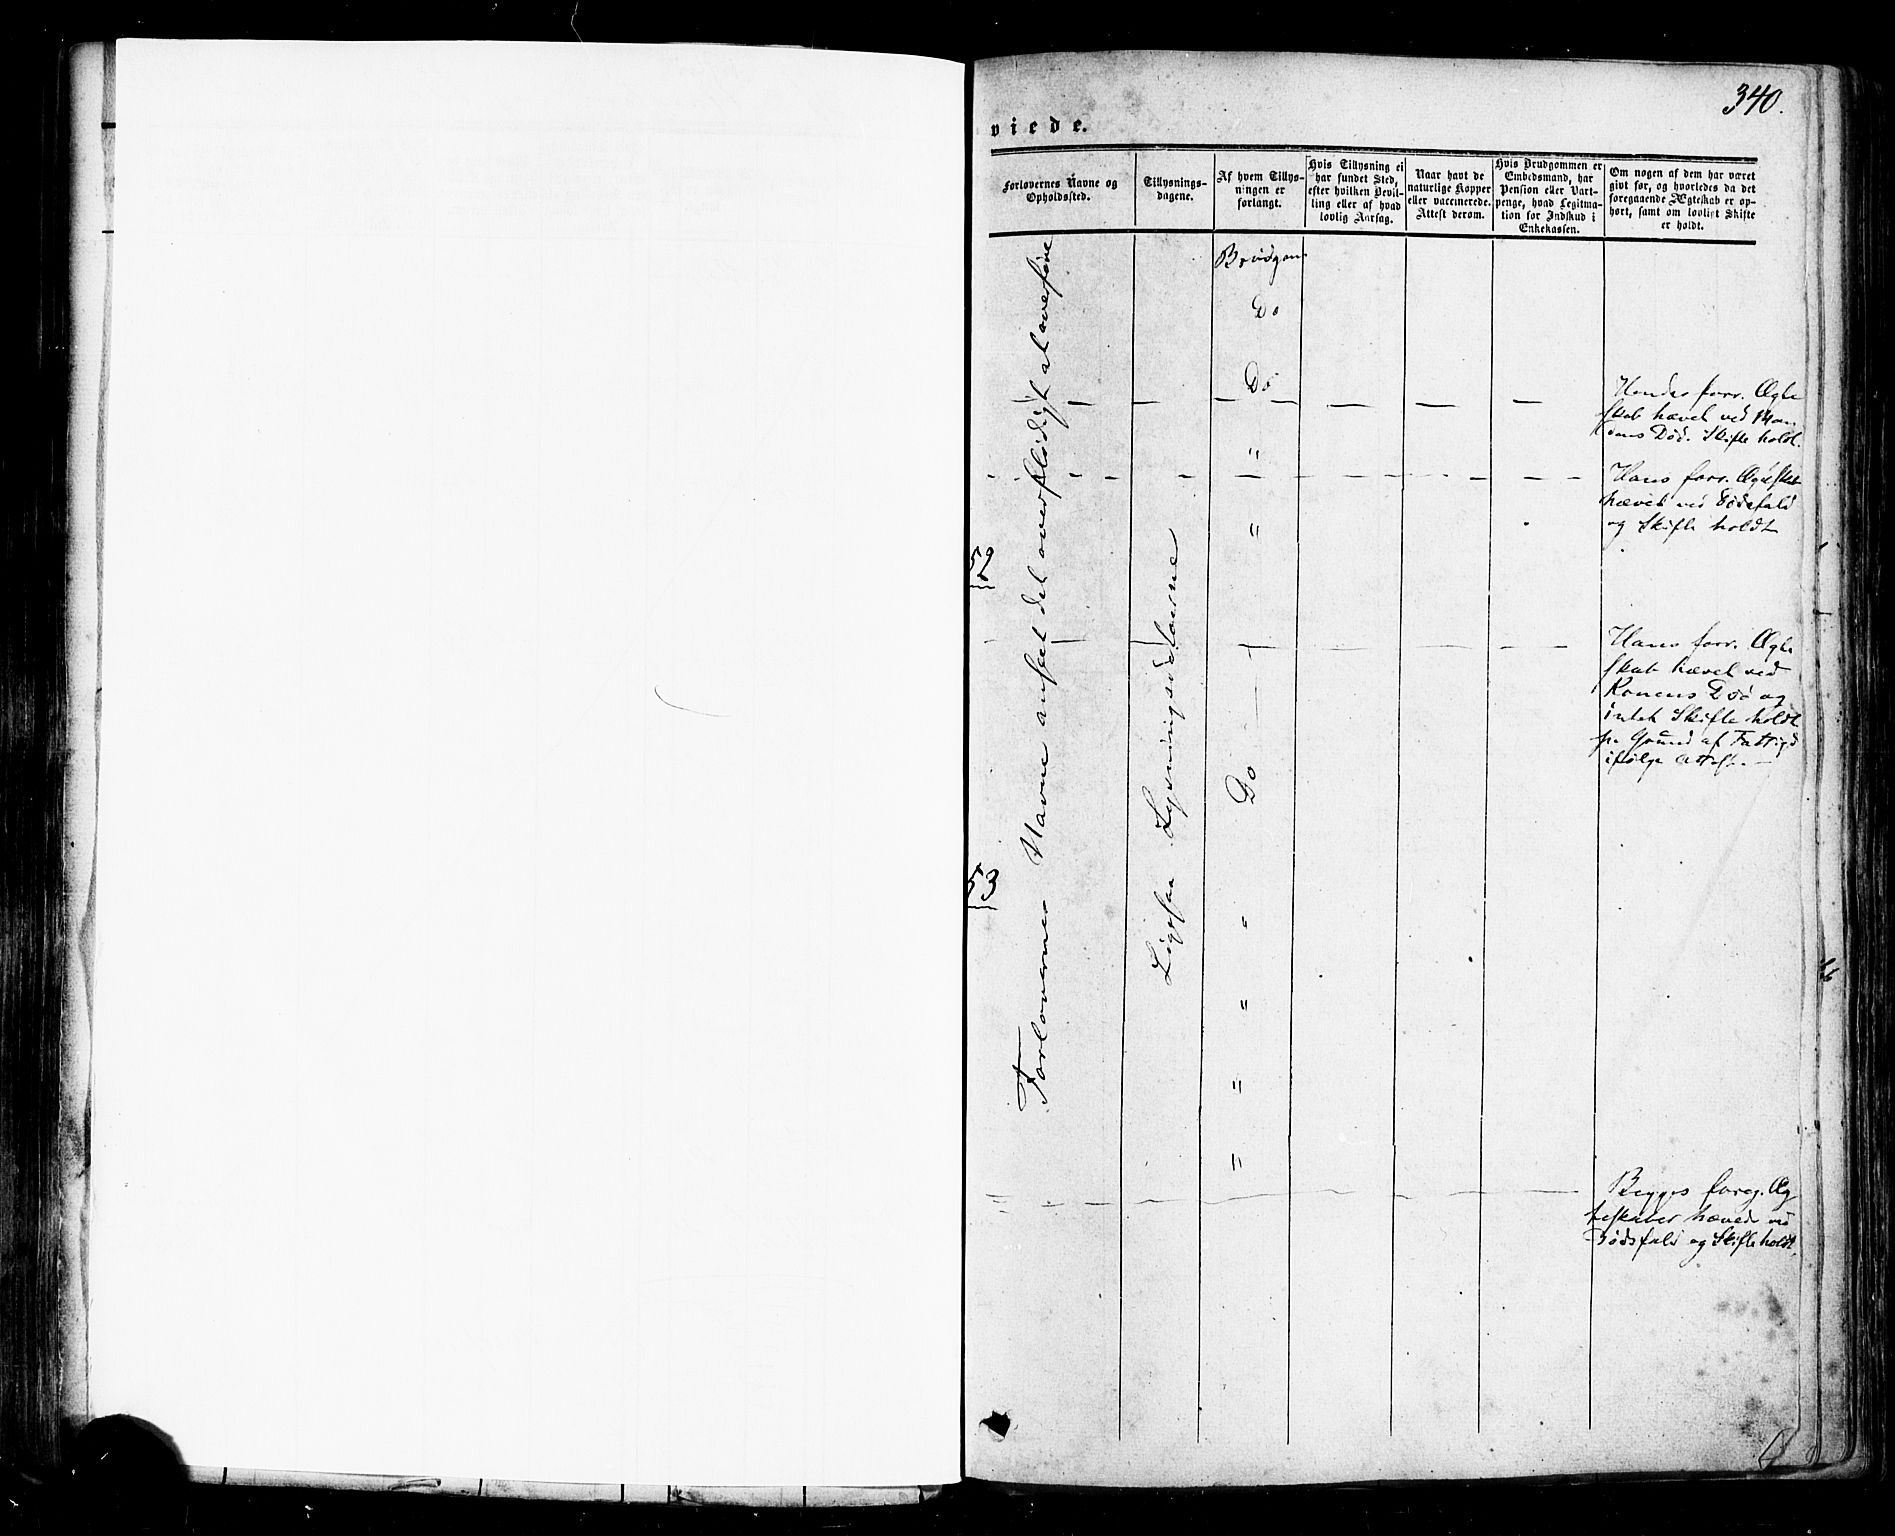 340.
viede.
Forlovernes Navne og
Opholdssted.
Tillysnings-
dagene.
Af hvem Tillys-
ningen er
forlangt.
Hvis Tillysning ei
har fundet Sted,
efter hvilken Bevil-
ling eller af hvad
lovlig Aarsag.
Naar havt de
naturlige Kopper
eller vaccinerede.
Attest derom.
Hvis Brudgommen er
Embedsmand, har
Pension eller Vart-
penge, hvad Legitima-
tion for Indskud i
Enkekassen.
Om nogen af dem har været
givt før, og hvorledes da det
foregaaende Ægteskab er op-
hørt, samt om lovligt Skifte
er holdt.
Forlovernes Navne anseet det overflødigt at overføre
Ligesaa Lysningsdatoerne
Brudgom
Do
Do
Hendes forr. Ægte
skab hævet ved Man
dens Død. Skifte holdt.
"
Hans forr. Ægteskab
hævet ved Dødsfald
og Skifte holdt
"
52
Hans forr. Ægte
skab hævet ved
Konens Død og
intet Skifte holdt
pr Grund af Fattigd
ifølge Attest. —
Do
53
"
"
"
"
Begges foreg. Æg
teskaber hævede ved
Dødsfald og Skifte holdt.